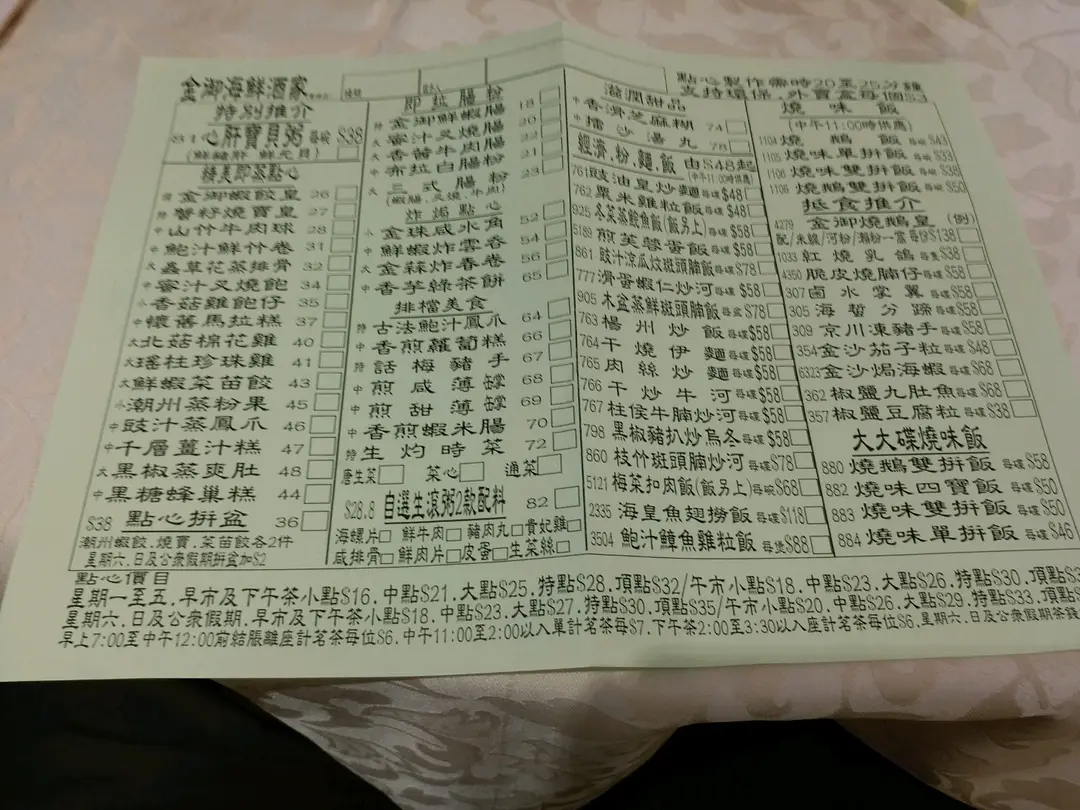 金御海鮮酒家
點心製作需時20至25分鐘
支持環保．外賣盒每個$3
特別推介
心肝寶貝粥 每碗 $38
(鮮豬肝 鮮元貝)
精美即蒸點心
金御蝦餃皇 26
特 蟹籽燒賣皇 27
中 山竹牛肉球 28
中 鮑汁鮮竹卷 31
大 蟲草花蒸排骨 32
中 蜜汁叉燒飽 34
小 香菇雞飽仔 35
中 懷舊馬拉糕 37
大 北菇棉花雞 40
大 瑤柱珍珠雞 41
大 鮮蝦菜苗餃 43
小 潮州蒸粉果 45
中 豉汁蒸鳳爪 46
中 千層薑汁糕 47
大 黑椒蒸爽肚 48
中 黑糖蜂巢糕 44
$38 點心拼盆 36
潮州蝦餃．燒賣．菜苗餃各2件
星期六．日及公衆假期拼盆加$2
即拉腸粉
特 金御鮮蝦腸 18
大 蜜汁叉燒腸 20
大 香茜牛肉腸 22
中 布拉白腸粉 21
大 三式腸粉 23
(蝦腸．叉燒．牛肉)
炸焗點心
小 金珠咸水角 52
中 鮮蝦炸雲吞 54
大 金絲炸春卷 56
中 香芋綠茶餅 65
排檔美食
特 古法鮑汁鳳爪 64
中 香煎蘿蔔糕 66
特 話梅豬手 67
中 煎咸薄罉 68
中 煎甜薄罉 69
中 香煎蝦米腸 70
特 生灼時菜 72
唐生菜 菜心 通菜
$28.8 自選生滾粥2款配料 82
海螺片 鮮牛肉 豬肉丸 貴妃雞
咸排骨 鮮肉片 皮蛋 生菜絲
滋潤甜品
中 香滑芝麻糊 74
中 擂沙湯丸 78
經濟．粉．麵．飯 由$48起
(中午11:00時供應)
761 豉油皇炒麵 每碟 $48
762 粟米雞粒飯 每碟 $48
925 冬菜蒸鯇魚飯(飯另上) 每碟 $58
5189 煎芙蓉蛋飯 每碟 $58
861 豉汁涼瓜炆斑頭腩飯 每碟 $78
777 滑蛋蝦仁炒河 每碟 $58
905 木盆蒸鮮斑頭腩飯 每盆 $78
763 楊州炒飯 每碟 $58
764 干燒伊麵 每碟 $58
765 肉絲炒麵 每碟 $58
766 干炒牛河 每碟 $58
767 柱侯牛腩炒河 每碟 $58
798 黑椒豬扒炒烏冬 每碟 $58
860 枝竹斑頭腩炒河 每碟 $78
5121 梅菜扣肉飯(飯另上) 每碗 $68
2335 海皇魚翅撈飯 每碟 $118
3504 鮑汁鱆魚雞粒飯 每煲 $88
燒味飯
(中午11:00時供應)
1104 燒鵝飯 每碗 $43
1105 燒味單拼飯 每碗 $33
1106 燒味雙拼飯 每碗 $38
1106 燒鵝雙拼飯 每碗 $50
抵食推介
4279 金御燒鵝皇 (例)
配/米線/河粉/瀨粉一窩 每份 $138
1033 紅燒乳鴿 每隻 $38
4350 脆皮燒腩仔 每碟 $58
307 鹵水掌翼 每碟 $58
305 海蜇分蹄 每碟 $58
309 京川凍豬手 每碟 $58
354 金沙茄子粒 每碟 $48
6323 金沙焗海蝦 每碟 $68
362 椒鹽九肚魚 每碟 $68
357 椒鹽豆腐粒 每碟 $38
大大碟燒味飯
880 燒鵝雙拼飯 每碟 $58
882 燒味四寶飯 每碟 $50
883 燒味雙拼飯 每碟 $50
884 燒味單拼飯 每碟 $46
點心價目
星期一至五．早市及下午茶小點$16．中點$21．大點$25．特點$28．頂點$32/午市小點$18．中點$23．大點$26．特點$30．頂點
星期六．日及公衆假期．早市及下午茶小點$18．中點$23．大點$27．特點$30．頂點$35/午市小點$20．中點$26．大點$29．特點$33．頂點
早上7:00至中午12:00前結賬離座計茗茶每位$6．中午11:00至2:00以入單計茗茶每$7．下午茶2:00至3:30以入座計茗茶每位$6．星期六．日及公衆假期茶錢